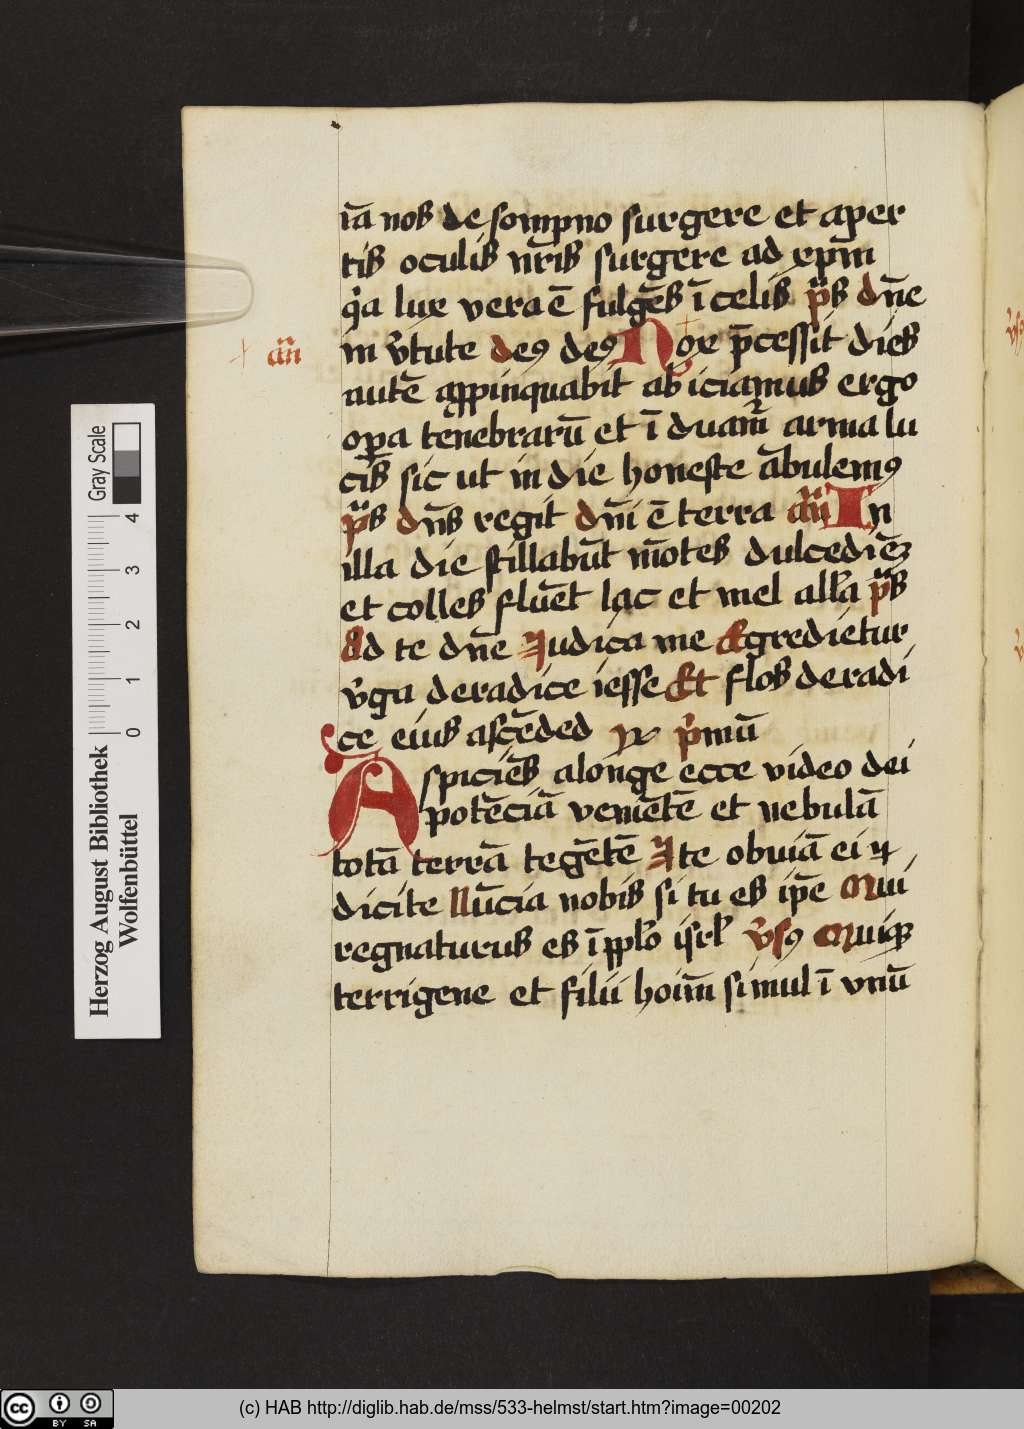 iā nos de sompno surgere et aper
tis oculis nr̄is surgere ad xpm̄
q̇a lux vera ē fulgēs ī celis p̄s dn̄e
an̄
in v̓tute deꝰ deꝰ Nox p̄cessit dies
autē appinquabit abiciamus ergo
oꝑa tenebrarū et īduam̄ arma lu
cis sic ut in die honeste ābulemꝰ
p̄s dn̄s regit dn̄i ē terra an̄ In
illa die stillabūt mōtes dulcediēꝫ
et colles fluēt lac et mel all̄a p̄s
Ad te dn̄e Judica me Egredietur
v̓ga de radice iesse Et flos de radi
ce eius ascēded ꝶ p̓mū
Aspiciēs a longe ecce video dei
potēciā veniētē et nebulā
totā terrā tegētē Ite obviā ei ⁊
dicite Nūcia nobis si tu es ip̄e Qui
regnaturus es ī ppl̓o isrl̓ v̓sꝰ Quiqꝫ
terrigene et filii hoim̄ simul ī vnū
Herzog August Bibliothek
Wolfenbüttel
0 1 2 3 4
Gray Scale
cc BY SA
(c) HAB http://diglib.hab.de/mss/533-helmst/start.htm?image=00202